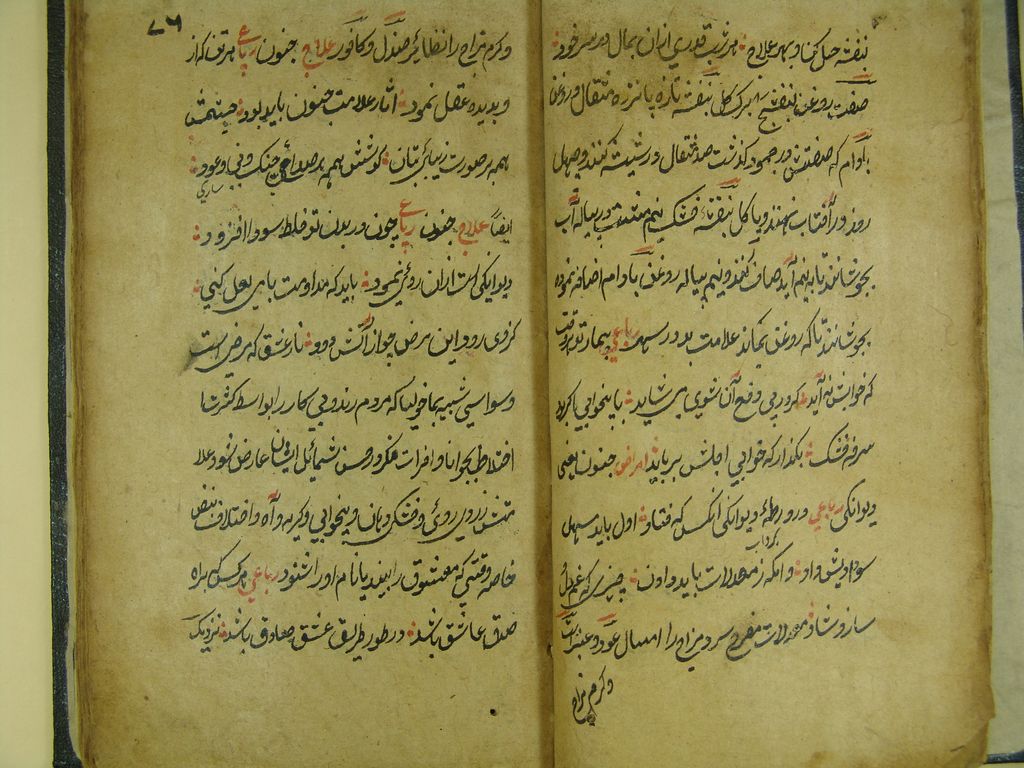 بنفشه حل کن و بهر علاج هر شب قدری ازان بمال در سر خود
صفت روغن بنفشه برک کل بنفشه تازه پانزده مثقال در روغن
بادام که صفتش در جمود کذشت صد مثقال در شیشه کنند و چهل
روز در آفتاب نهند و یا کل بنفشه خشک نیم مشت در پیاله آب
بجوشانند تا به نیم آید صاف کنند و نیم پیاله روغن بادام اضافه نموده
بجوشانند تا که روغن بماند علامت بد در سهر رباعی بیمار
که خوابش نه آید در پی دفع آن شوی می شاید با بیخوابی
سرفه خشک بکذار که خوابی اجلش برباید امراض جنون یعنی
دیوانکی رباعی در ورطهٔ دیوانکی آنکس که فتاد اول باید سهل
سودایش داد وانکه ز معدلات باید دادن چیزی که غم دل
کرداب
سازد شاد معدلات مفرح سرد مزاج را امثال عود و عنبر
وکرم مزاج
۷۶
وکرم مزاج را نظائر صندل و کافور علاج جنون رباعی هر تن که از
و بدیده عقل نمود آثار علامت جنون باید بود چشمش
همه بر صورت زیبای بتان کوشش همه بر صدای چنک و نی و عود
ساری
ایضا علاج جنون رباعی چون در بدن تو خلط سودا افزود
دیوانکی ات ازان روئی نمود باید که مداومت بای لعل کنی
کردی رود این مرض چو از آتش دود ناز عشق که مرضی است
وسواسی شبیه بماخولیا که مردم رند و بی کار را بواسطه کثرت
اختلاط بجوانان و افراط فکر در حسن شمائل ایشان عارض شود علا
متش زردی روئی و خشکی دهان و بیخوابی و کریه و آه و اختلاف نبض
خاصه وقتی که معشوق را بیند یا نام او را شنود رباعی هر کس که براه
صدق عاشق باشد در طور طریق عشق صادق باشد نزدیک